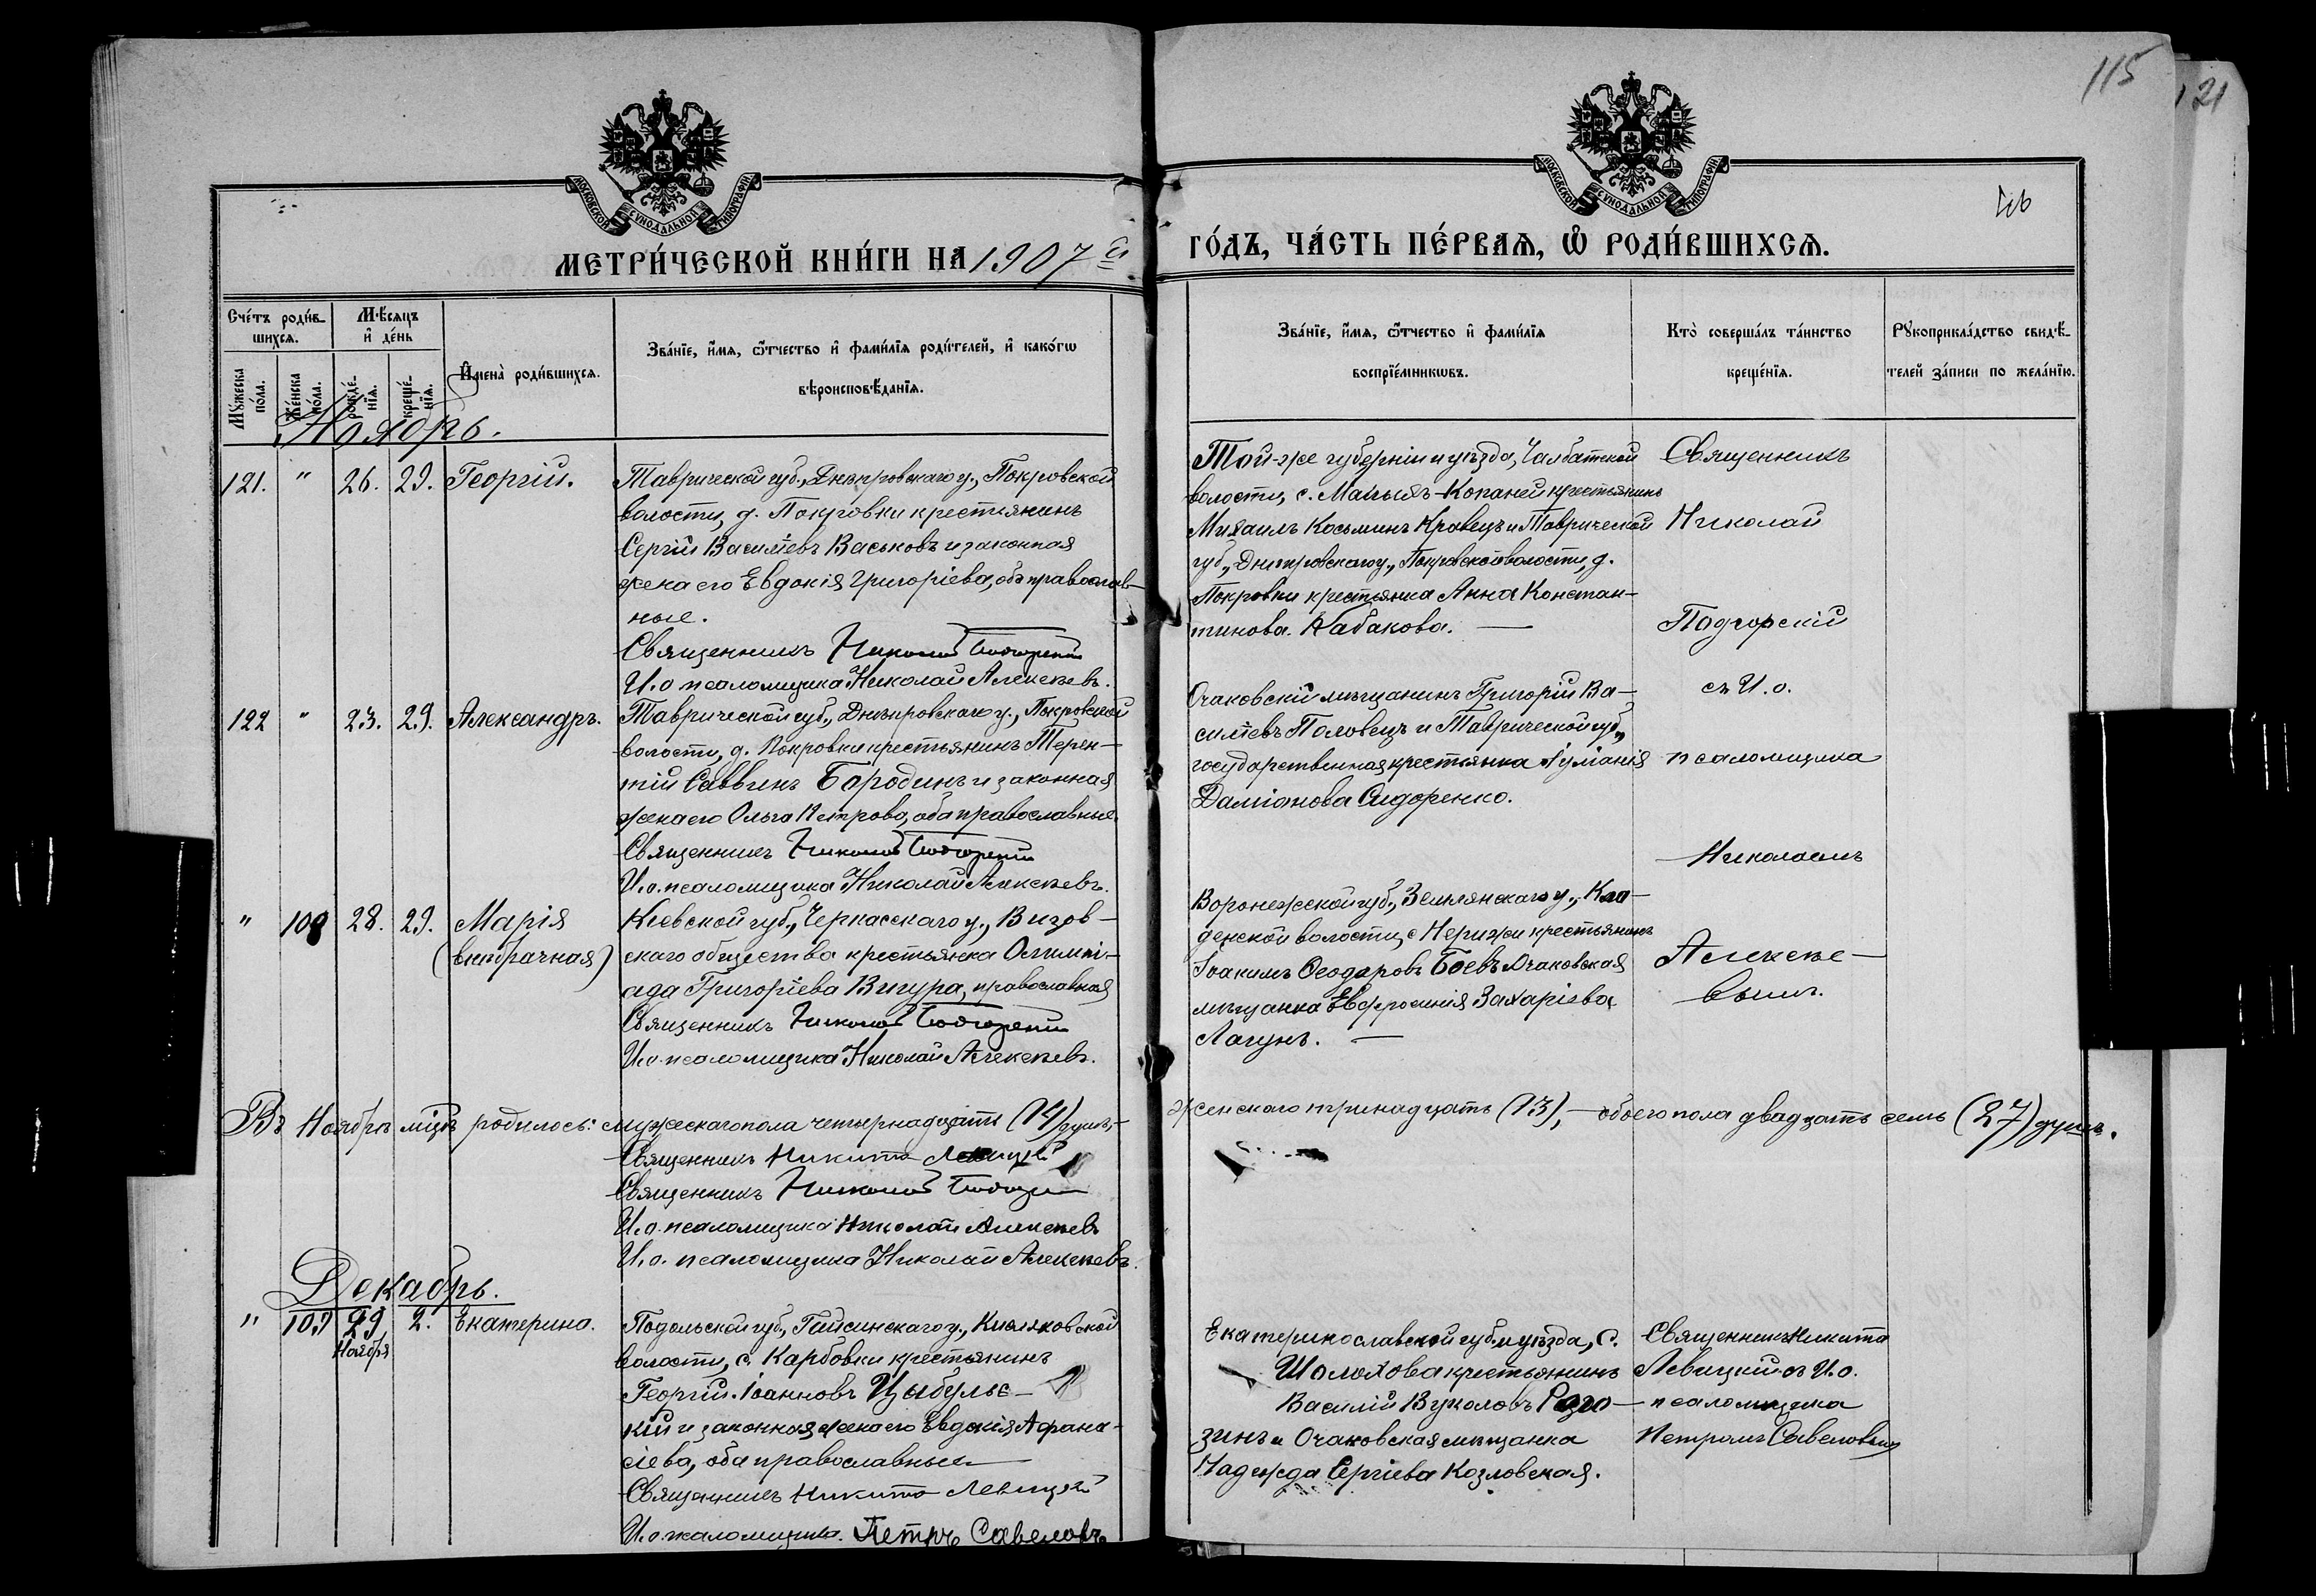 115
121
МОСКОВСКОЙ СѴНОДАЛЬНОЙ ТИПОГРАФІИ
МОСКОВСКОЙ СѴНОДАЛЬНОЙ ТИПОГРАФІИ
МЕТРИ́ЧЕСКОЙ КНИ́ГИ НА 1907 й
ГО́ДЪ, ЧА́СТЬ ПЕ́РВАѦ, Ѽ РОДИ́ВШИХСѦ.
Сче́тъ роди́в-
шихся.
Мѣсяцъ
и де́нь
Мꙋжеска пола.
Же́нска по́ла.
рожде́-
нїя.
креще́-
нїя.
И̂мена̀ роди́вшихся.
Зва́нїе, и́мя, ѻ́тчество и фами́лїя роди́телей, и како́гѡ
вѣроисповѣ́данїя.
Зва́нїе, и́мя, ѻ́тчество и фами́лїя
воспрїе́мникѡвъ.
Кто̀ соверша́лъ та́инство
креще́нїя.
Рꙋкоприкла́дство свидѣ́-
телей за́писи по жела́нїю.
Ноябрь.
121. " 26. 29. Георгій.
Таврической губ., Днѣпровскаго у., Покровской
волости, д. Покровки крестьянинъ
Сергій Василіевъ Васьковъ и законная
жена его Евдокія Григоріева, оба православ-
ные.
Священникъ Николай Подгорскій
И.о псаломщика Николай Алексѣевъ.
Той-же губерніи и уѣзда, Чалбатской
волости, с. Малыхъ-Копаней крестьянинъ
Михаилъ Косьминъ Кравецъ и Таврической
губ., Днѣпровскаго у., Покровской волости, д.
Покровки крестьянка Анна Констан-
тинова Кабакова. —
Священникъ
Николай
Подгорскій
съ И. о.
псаломщика
Николаемъ
Алексѣе-
вымъ.
122 " 23. 29. Александръ.
Таврической губ., Днѣпровскаго у., Покровской
волости, д. Покровки крестьянинъ Терен-
тій Саввинъ Бородинъ и законная
жена его Ольга Петрова, оба православные.
Священникъ Николай Подгорскій
И.о. псаломщика Николай Алексѣевъ.
Очаковскій мѣщанинъ Григорій Ва-
силіевъ Половецъ и Таврической губ.,
государственная крестьянка Іуліанія
Даміанова Сидоренко.
" 108 28. 29. Марія
(внѣбрачная)
Кіевской губ., Черкасскаго у., Вигов-
скаго общества крестьянка Олимпі-
ада Григоріева Вигура, православная
Священникъ Николай Подгорскій
И.о. псаломщика Николай Алексѣевъ.
Воронежской губ., Землянскаго у.,
денской волости, с. крестьянинъ
Іоакимъ Ѳеодоровъ Боевъ Очаковская
мѣщанка Евфросинія Захаріева
Лагунъ. —
Въ Ноябрѣ м-цѣ родилось: мужескаго пола четырнадцать (14) душъ,-
женскаго тринадцать (13), — обоего пола двадцать семь (27) душъ.
Священникъ Никита Левицкій
Священникъ Николай Подгорскій
И.о. псаломщика Николай Алексѣевъ
И.о. псаломщика Николай Алексѣевъ.
Декабрь.
" 109 29 2. Екатерина.
Ноября
Подольской губ., Гайсинскаго у., Кисляковской
волости, с. Карбовки крестьянинъ
Георгій Іоанновъ Цыбульс-
кій и законная жена его Евдокія Афана-
сіева, оба православные.
Священникъ Никита Левицкій
И.о. псаломщика. Петръ Савеловъ
Екатеринославской губ. и уѣзда, с.
Шолохова крестьянинъ
Василій Вуколовъ Разго-
зинъ и Очаковская мѣщанка
Надежда Сергіева Козловская.
Священникъ Никита
Левицкій съ И.о.
псаломщика
Петромъ Савеловымъ